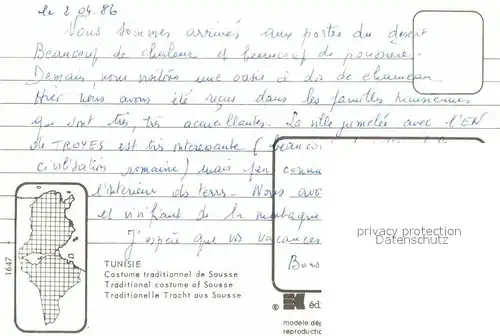 le 2.04.86
Nous sommes arrivés aux portes du désert
Beaucoup de chaleur et beaucoup de poussière.
Demain, nous visitons une oasis à dos de chameau
Hier nous avons été reçus dans les familles tunisiennes
qui sont très, très accueillantes. La ville jumelée avec l'EN
de TROYES est très intéressante (
civilisation romaine) mais peu
l'intérieur des terres. Nous
et visitant de la montagne
J'espère que vos vacances
Bons
privacy protection
Datenschutz
1647
TUNISIE
Costume traditionnel de Sousse
Traditional costume of Sousse
Traditionelle Tracht aus Sousse
© EK éd
modèle dép
reproductio